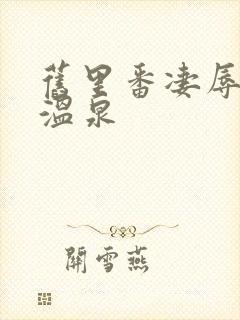 舊里番凄辱
溫泉
關雪燕